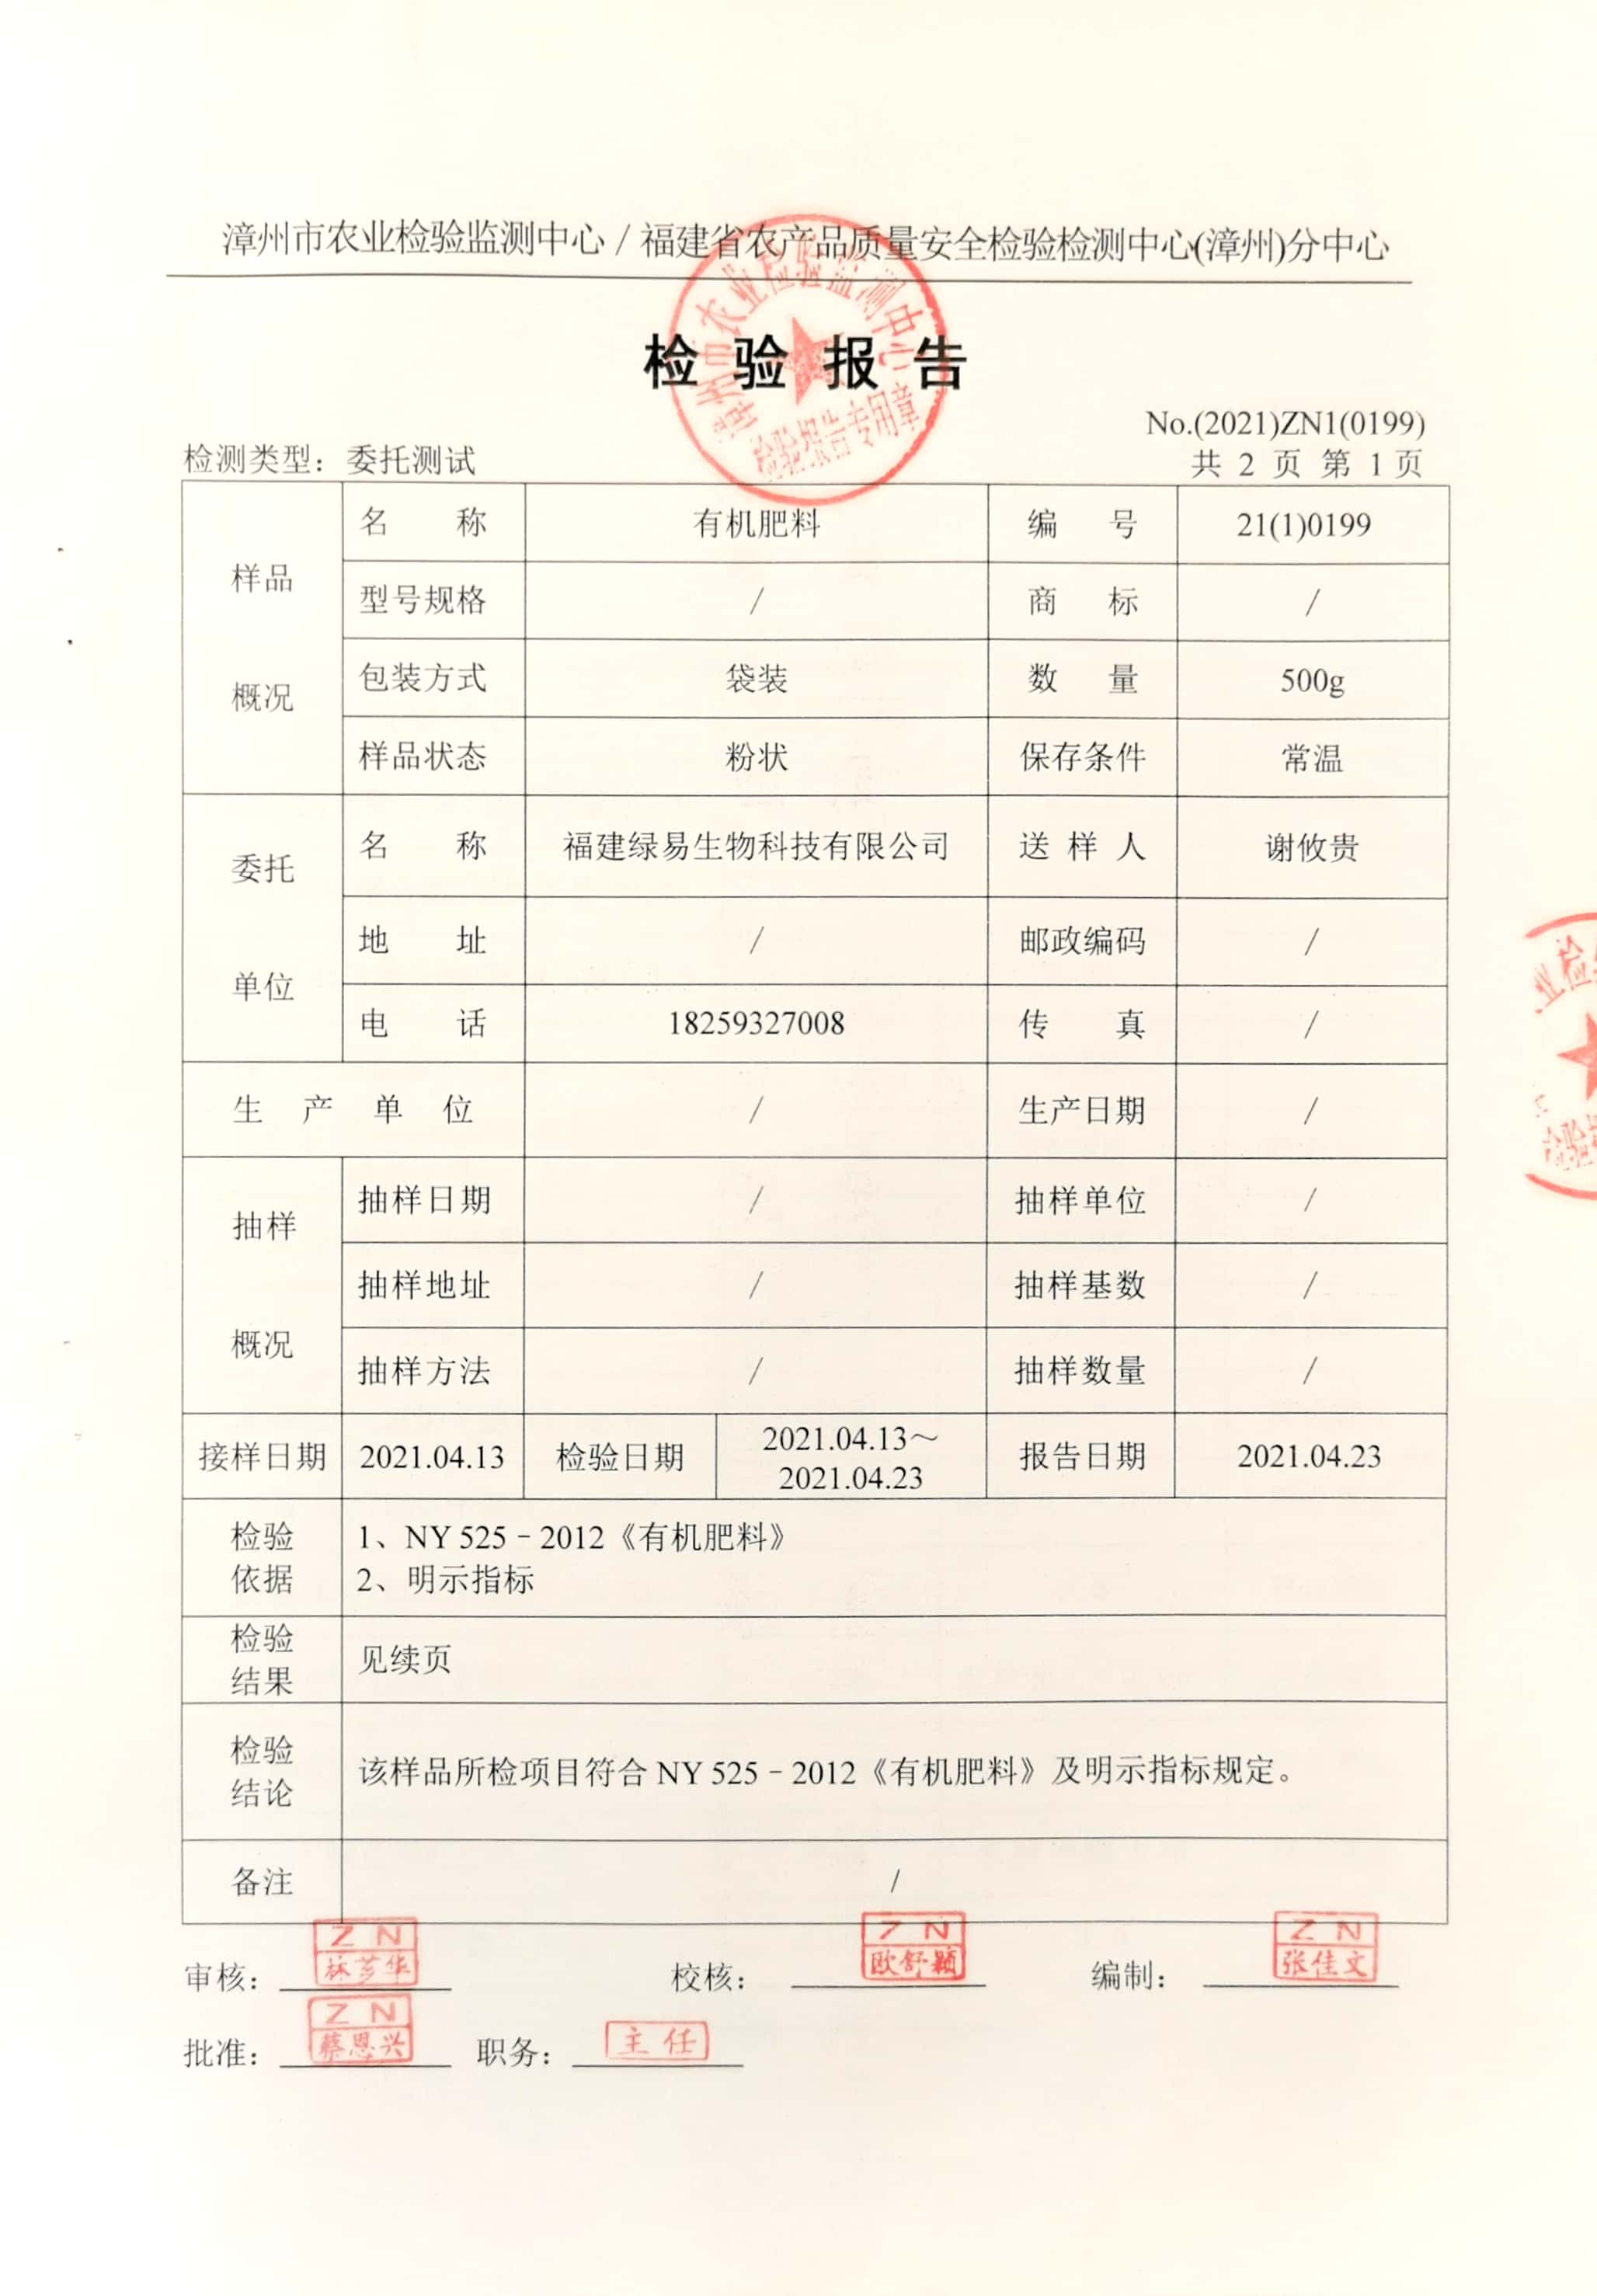 漳州市农业检验监测中心 / 福建省农产品质量安全检验检测中心(漳州)分中心
漳州市农业检验监测中心
检验报告专用章
检 验 报 告
No.(2021)ZN1(0199)
检测类型：委托测试
共 2 页 第 1 页
样品概况
名 称 有机肥料 编 号 21(1)0199
型号规格 / 商 标 /
包装方式 袋装 数 量 500g
样品状态 粉状 保存条件 常温
委托单位
名 称 福建绿易生物科技有限公司 送 样 人 谢攸贵
地 址 / 邮政编码 /
电 话 18259327008 传 真 /
生 产 单 位 / 生产日期 /
抽样概况
抽样日期 / 抽样单位 /
抽样地址 / 抽样基数 /
抽样方法 / 抽样数量 /
接样日期 2021.04.13 检验日期 2021.04.13～ 2021.04.23 报告日期 2021.04.23
检验依据
1、NY 525－2012《有机肥料》
2、明示指标
检验结果 见续页
检验结论 该样品所检项目符合 NY 525－2012《有机肥料》及明示指标规定。
备注 /
审核： ZN 校核： ZN 欧舒颖 编制： ZN 张佳文
批准： ZN 蔡恩兴 职务： 主任
业检
检验